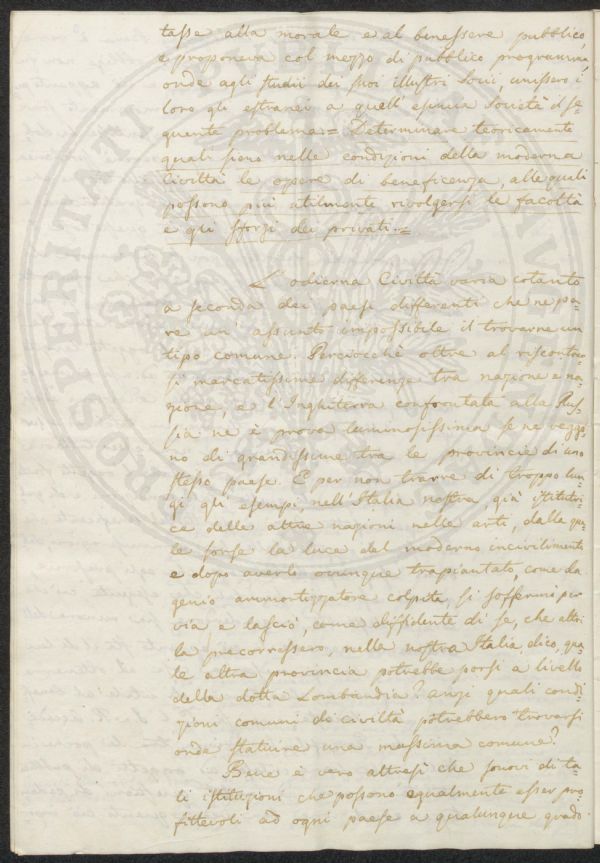 tasse alla morale e al benessere pubblico,
e proponeva col mezzo di pubblico programma,
onde agli studii dei suoi illustri Socii, unissero i
loro gli estranei a quell' esimia Società il se-
guente problema = Determinare teoricamente
quali sieno nelle condizioni della moderna
Civiltà le opere di beneficenza, alle quali
possono più utilmente rivolgersi le facoltà
e gli sforzi dei privati. =
L' odierna Civiltà varia cotanto
a seconda dei paesi differenti che ne pa-
re un' assunto impossibile il trovarne un
tipo comune. Perciocchè oltre al riscontrar-
si marcatissime differenze tra nazione e na-
zione, e l' Inghilterra confrontata alla Rus-
sia ne è prova luminosissima se ne veggo-
no di grandissime tra le provincie di uno
stesso paese. E per non trarre di troppo lun-
gi gli esempi, nell' Italia nostra, già istitutri-
ce delle altre nazioni nelle arti, dalla qua-
le sorse la luce del moderno incivilimento
e dopo averlo ovunque trapiantato, come da
genio ammortizzatore colpita, si soffermò per
via e lasciò, come diffidente di se, che altri
la precorressero, nella nostra Italia, dico, qua-
le altra provincia potrebbe porsi a livello
della dotta Lombardia? anzi quali condi-
zioni comuni di civiltà potrebbero trovarsi
onde statuire una massima comune?
Bene è vero altresì che sonovi di ta-
li istituzioni che possono egualmente esser pro-
fittevoli ad ogni paese a qualunque grado
PROSPERITATI PUBLICAE AUGENDAE